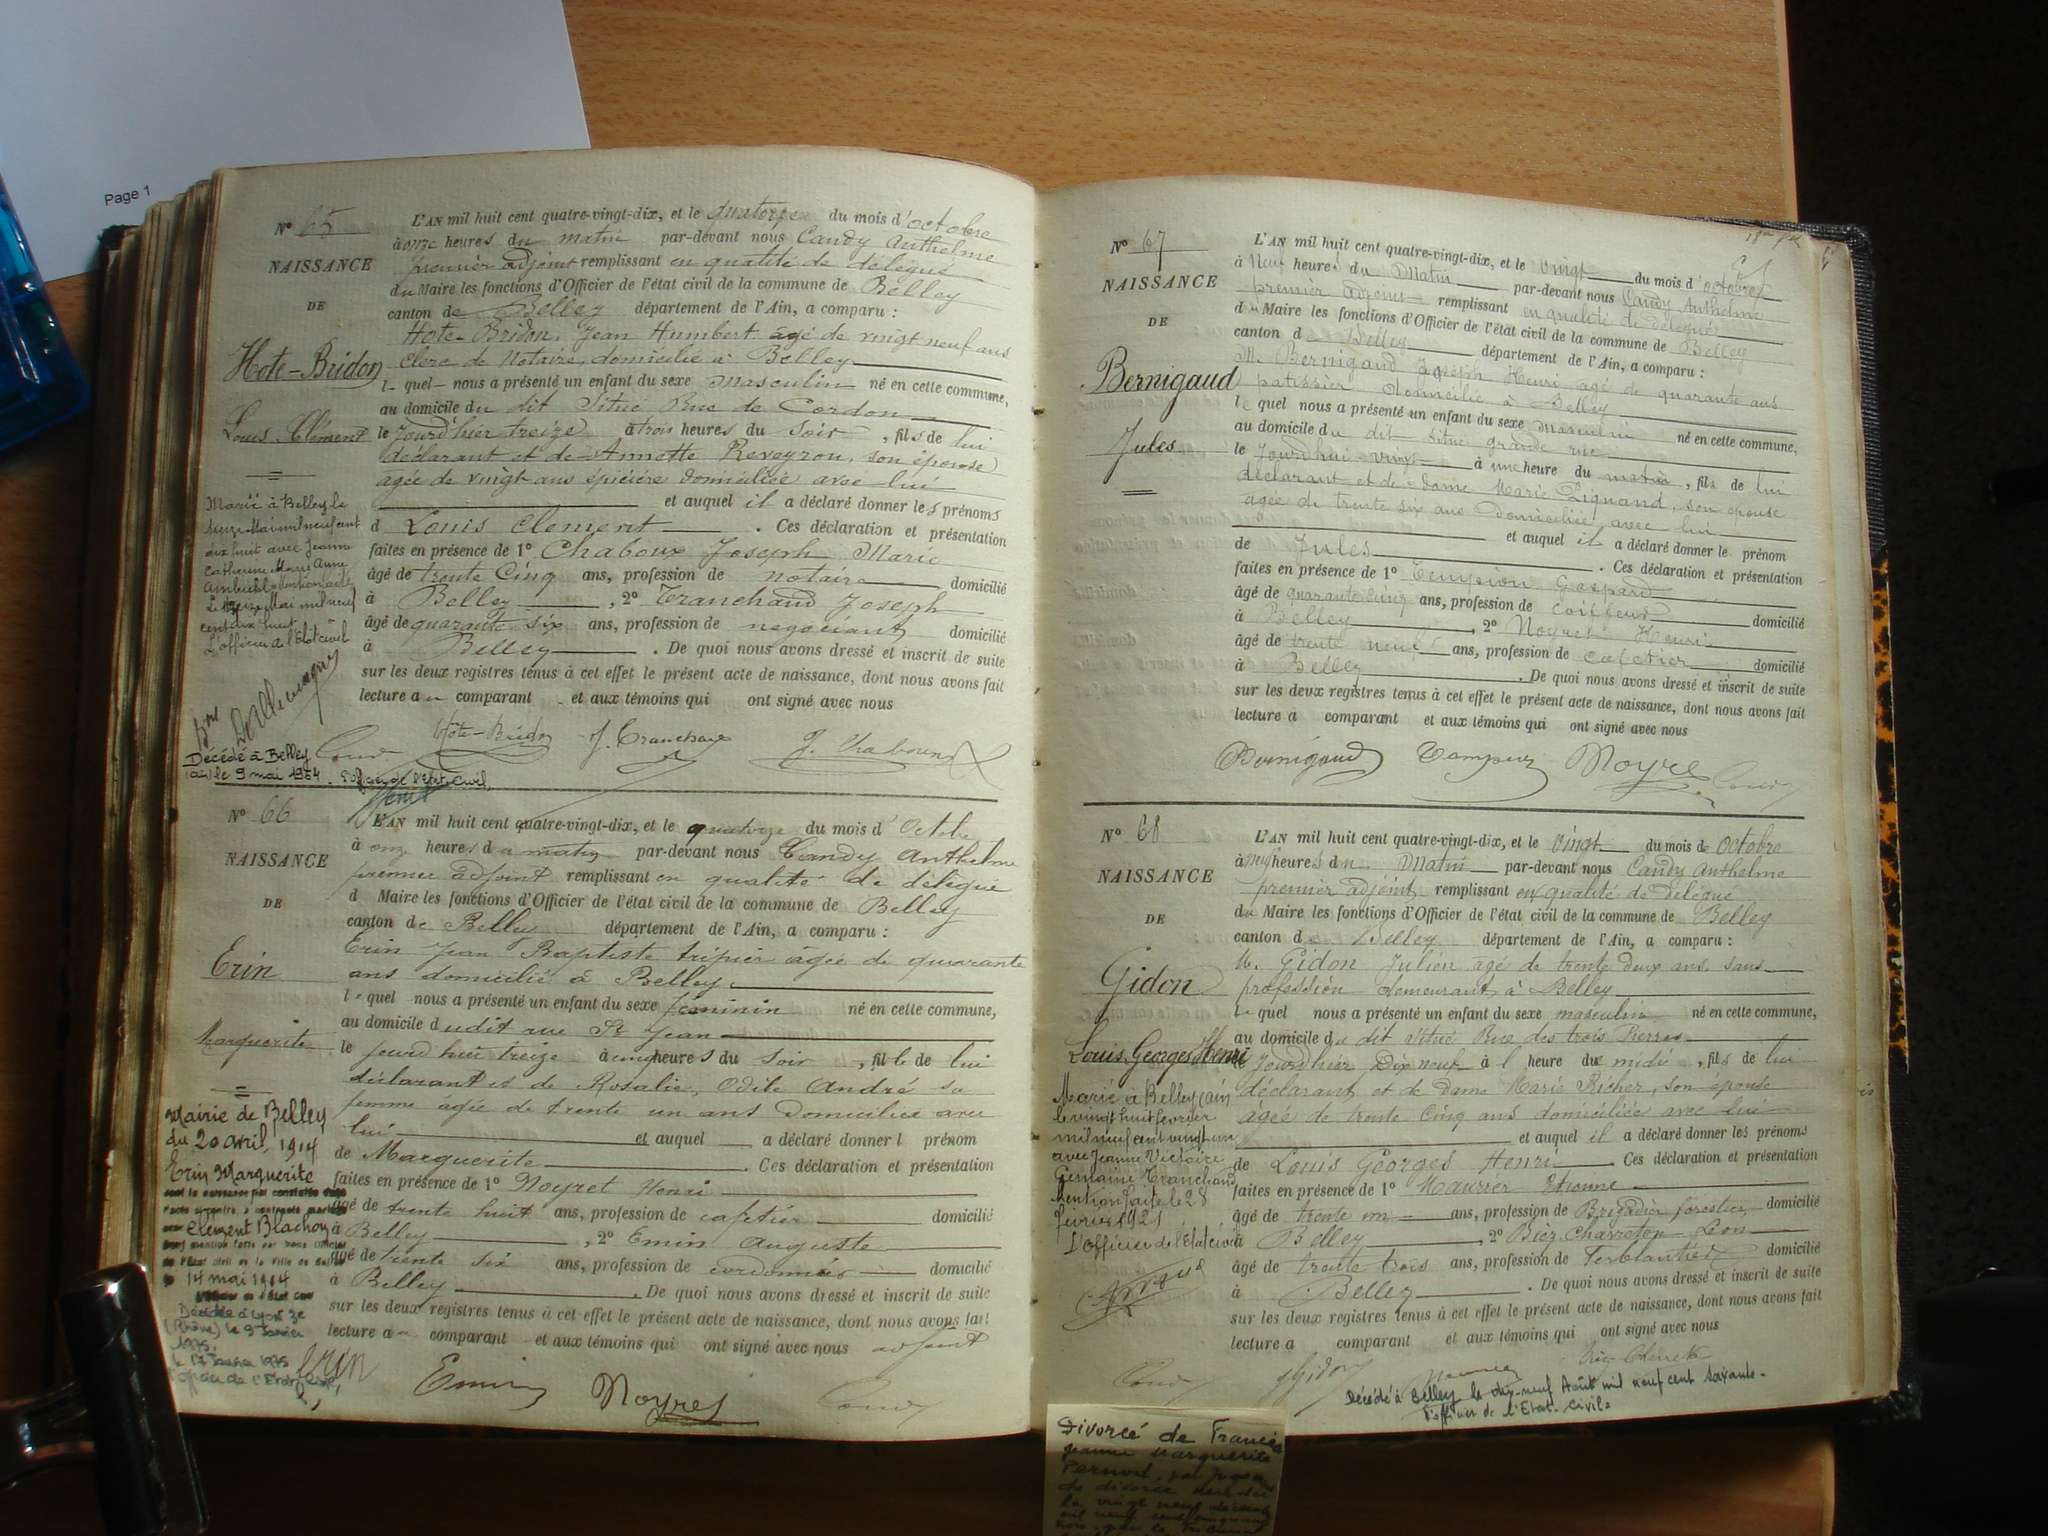 Page 1
N° 65
NAISSANCE
DE
Hote-Bridon
Louis Clément
L'AN mil huit cent quatre-vingt-dix, et le quatorze du mois d'octobre
à onze heures du matin par-devant nous Candy Anthelme
premier adjoint remplissant en qualité de délégué
du Maire les fonctions d'Officier de l'état civil de la commune de Belley
canton de Belley département de l'Ain, a comparu :
Hote-Bridon, Jean Humbert âgé de vingt neuf ans
Clerc de Notaire, domicilié à Belley
lequel nous a présenté un enfant du sexe masculin né en cette commune,
au domicile du dit Situé Rue de Cordon
le jourd'hier treize à trois heures du soir, fils de lui
déclarant et de Annette Reveyron, son épouse
agée de vingt ans épicière domiciliée avec lui
et auquel il a déclaré donner les prénoms
d Louis Clement. Ces déclaration et présentation
faites en présence de 1° Chaboux Joseph Marie
âgé de trente Cinq ans, profession de notaire domicilié
à Belley, 2° Tranchand Joseph
âgé de quarante six ans, profession de negociant domicilié
à Belley. De quoi nous avons dressé et inscrit de suite
sur les deux registres tenus à cet effet le présent acte de naissance, dont nous avons fait
lecture au comparant et aux témoins qui ont signé avec nous
Marié à Belley le
seize Mai mil neuf cent
dix huit avec Jeanne
Catherine Marie Anne
mil neuf
cent dix huit
L'officier de l'État civil
Hote-Bridon J. Tranchand J. Chaboux
Décédé à Belley
(Ain) le 9 mai 1964. L'officier de l'Etat Civil,
N° 66
NAISSANCE
DE
Erin
Marguerite
L'AN mil huit cent quatre-vingt-dix, et le quatorze du mois d'Octobre
à onze heures du matin par-devant nous Candy Anthelme
premier adjoint remplissant en qualité de délégué
d Maire les fonctions d'Officier de l'état civil de la commune de Belley
canton de Belley département de l'Ain, a comparu :
Erin Jean Baptiste tripier âgée de quarante
ans domicilié à Belley.
lequel nous a présenté un enfant du sexe féminin né en cette commune,
au domicile dudit rue St Jean
le jourd'hier treize à cinq heures du soir, fille de lui
déclarant et de Rosalie, Odile André sa
femme âgée de trente un ans domiciliée avec
lui et auquel a déclaré donner l prénom
de Marguerite. Ces déclaration et présentation
faites en présence de 1° Noyret Henri
âgé de trente huit ans, profession de cafetier domicilié
à Belley, 2° Emin Auguste
âgé de trente six ans, profession de cordonnier domicilié
à Belley. De quoi nous avons dressé et inscrit de suite
sur les deux registres tenus à cet effet le présent acte de naissance, dont nous avons fait
lecture au comparant et aux témoins qui ont signé avec nous adjoint
Mairie de Belley
du 20 avril, 1914
Erin Marguerite
Clement Blachon
14 mai 1914
Décédée à Lyon 3e
(Rhône) le 9 Janvier
1975.
le 17 Janvier 1975
l'officier de l'Etat civil,
Erin Emin Noyret Candy
N° 67
NAISSANCE
DE
Bernigaud
Jules
L'AN mil huit cent quatre-vingt-dix, et le vingt du mois d'octobre
à Neuf heures du Matin par-devant nous Candy Anthelme
premier adjoint remplissant en qualité de délégué
du Maire les fonctions d'Officier de l'état civil de la commune de Belley
canton de Belley département de l'Ain, a comparu :
M. Bernigaud Joseph Henri agé de quarante ans
patissier domicilié à Belley
lequel nous a présenté un enfant du sexe masculin né en cette commune,
au domicile du dit situé grande rue
le jourd'hui vingt à une heure du matin, fils de lui
déclarant et de dame Marie Pignand, son épouse
agée de trente six ans domiciliée avec lui
et auquel il a déclaré donner le prénom
de Jules. Ces déclaration et présentation
faites en présence de 1° Gaspard
âgé de quarante cinq ans, profession de coiffeur domicilié
à Belley, 2° Noyret Henri
âgé de trente neuf ans, profession de cafetier domicilié
à Belley. De quoi nous avons dressé et inscrit de suite
sur les deux registres tenus à cet effet le présent acte de naissance, dont nous avons fait
lecture a comparant et aux témoins qui ont signé avec nous
Bernigaud Noyret Candy
N° 68
NAISSANCE
DE
Gidon
Louis Georges Henri
L'AN mil huit cent quatre-vingt-dix, et le vingt du mois de octobre
à neuf heures du Matin par-devant nous Candy Anthelme
premier adjoint remplissant en qualité de délégué
du Maire les fonctions d'Officier de l'état civil de la commune de Belley
canton de Belley département de l'Ain, a comparu :
M. Gidon Julien âgé de trente deux ans, sans
profession demeurant à Belley
lequel nous a présenté un enfant du sexe masculin né en cette commune,
au domicile du dit situé Rue des trois Pierres
le jourd'hier Dix neuf à 1 heure du midi, fils de lui
déclarant et de Dame Marie Richer, son épouse
âgée de trente Cinq ans domiciliée avec lui
et auquel il a déclaré donner les prénoms
de Louis Georges Henri. Ces déclaration et présentation
faites en présence de 1° Maurier Etienne
âgé de trente un ans, profession de Brigadier forestier domicilié
à Belley, 2° Biez Charreton Léon
âgé de trente trois ans, profession de Ferblantier domicilié
à Belley. De quoi nous avons dressé et inscrit de suite
sur les deux registres tenus à cet effet le présent acte de naissance, dont nous avons fait
lecture a comparant et aux témoins qui ont signé avec nous
Marié à Belley (Ain)
le vingt huit février
mil neuf cent vingt un
avec Jeanne Victoire
Germaine Tranchand
Mention faite le 28
février 1921
L'Officier de l'État civil
Candy Gidon
Décédé à Belley le dix-neuf Août mil neuf cent soixante.
l'officier de l'Etat-Civil
Divorcé de Francia
Jeanne Marguerite
Pernod, par Jugem
de divorce
le vingt neuf
mil neuf cent